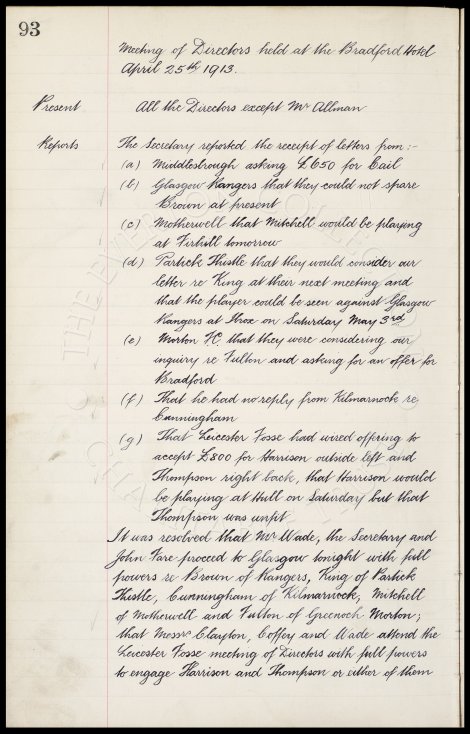 93
Meeting of Directors held at the Bradford Hotel
April 25th 1913.
Present All the Directors except Mr Allman
Reports The Secretary reported the receipt of letters from :-
(a) Middlesbrough asking £650 for Cail
(b) Glasgow Rangers that they could not spare
Brown at present
(c) Motherwell that Mitchell would be playing
at Firhill tomorrow
(d) Partick Thistle that they would consider our
letter re King at their next meeting and
that the player could be seen against Glasgow
Rangers at Ibrox on Saturday May 3rd
(e) Morton FC that they were considering our
inquiry re Fulton and asking for an offer for
Bradford
(f) That he had no reply from Kilmarnock re
Cunningham
(g) That Leicester Fosse had wired offering to
accept £800 for Harrison outside left and
Thompson right back, that Harrison would
be playing at Hull on Saturday but that
Thompson was unfit
It was resolved that Mr Wade, the Secretary and
John Fare proceed to Glasgow tonight with full
powers re Brown of Rangers, King of Partick
Thistle, Cunningham of Kilmarnock, Mitchell
of Motherwell and Fulton of Greenock Morton;
that Messrs Clayton, Coffey and Wade attend the
Leicester Fosse meeting of Directors with full powers
to engage Harrison and Thompson or either of them